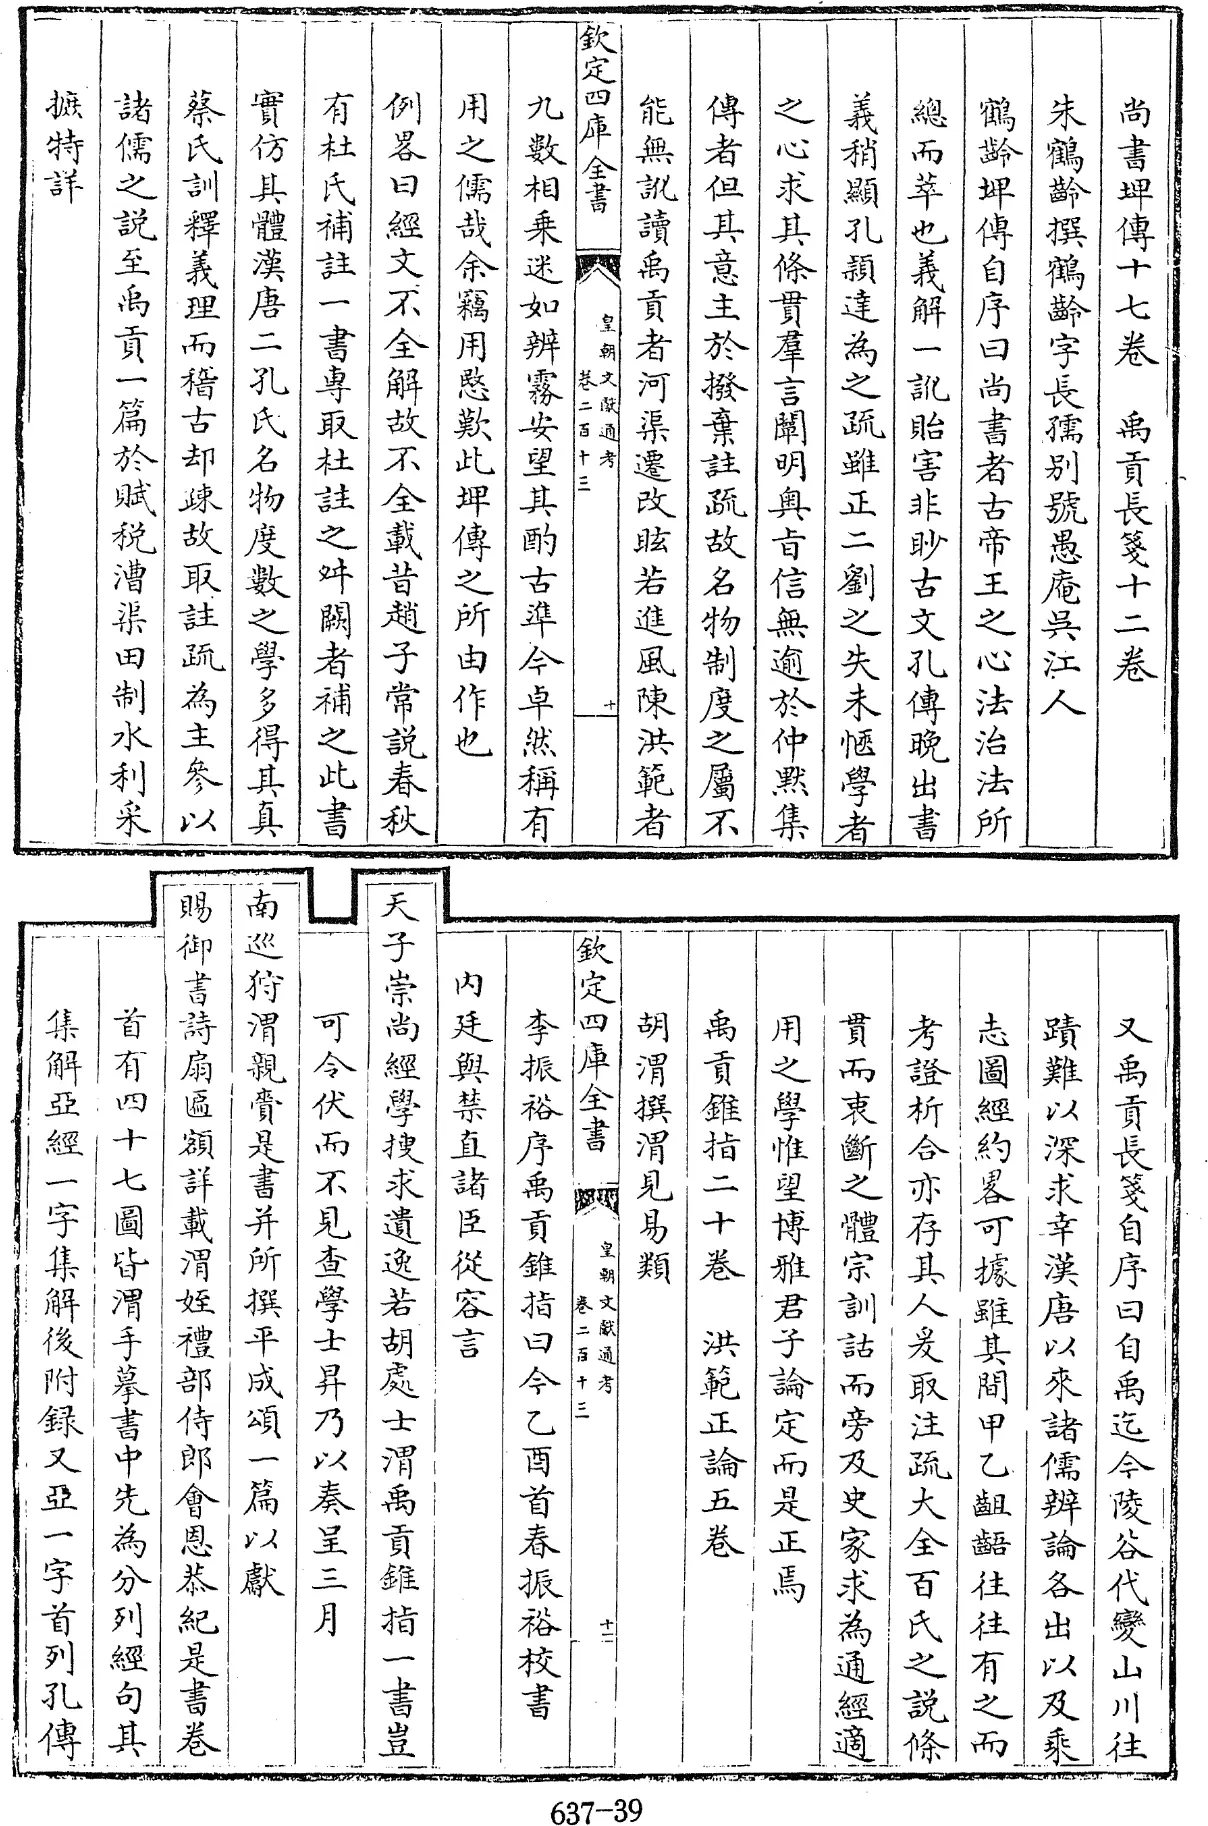 尚書埤傳十七卷　禹貢長箋十二卷
朱鶴齡撰鶴齡字長孺别號愚庵吳江人
鶴齡埤傳自序曰尚書者古帝王之心法治法所
總而萃也義解一訛貽害非眇古文孔傳晚出書
義稍顯孔頴達為之疏雖正二劉之失未愜學者
之心求其條貫羣言闡明奥㫖信無逾於仲黙集
傳者但其意主於撥棄註疏故名物制度之屬不
能無訛讀禹貢者河渠遷改眩若進風陳洪範者
欽定四庫全書
皇朝文獻通考
卷二百十三
十
九數相乘迷如辨霧安望其酌古凖今卓然稱有
用之儒哉余竊用愍歎此埤傳之所由作也
例畧曰經文不全解故不全載昔趙子常説春秋
有杜氏補註一書專取杜註之舛闕者補之此書
實仿其體漢唐二孔氏名物度數之學多得其真
蔡氏訓釋義理而稽古却疎故取註疏為主參以
諸儒之説至禹貢一篇於賦税漕渠田制水利采
摭特詳
又禹貢長箋自序曰自禹迄今陵谷代變山川往
蹟難以深求幸漢唐以來諸儒辨論各出以及乘
志圖經約畧可據雖其間甲乙齟齬往往有之而
考證析合亦存其人爰取注疏大全百氏之説條
貫而衷斷之體宗訓詁而旁及史家求為通經適
用之學惟望博雅君子論定而是正焉
禹貢錐指二十卷　洪範正論五卷
胡渭撰渭見易類
欽定四庫全書
皇朝文獻通考
卷二百十三
十一
李振裕序禹貢錐指曰今乙酉首春振裕校書
内廷與禁直諸臣從容言
天子崇尚經學搜求遺逸若胡處士渭禹貢錐指一書豈
可令伏而不見查學士昇乃以奏呈三月
南巡狩渭親賫是書并所撰平成頌一篇以獻
賜御書詩扇匾額詳載渭姪禮部侍郎會恩恭紀是書卷
首有四十七圖皆渭手摹書中先為分列經句其
集解亞經一字集解後附録又亞一字首列孔傳
637-39